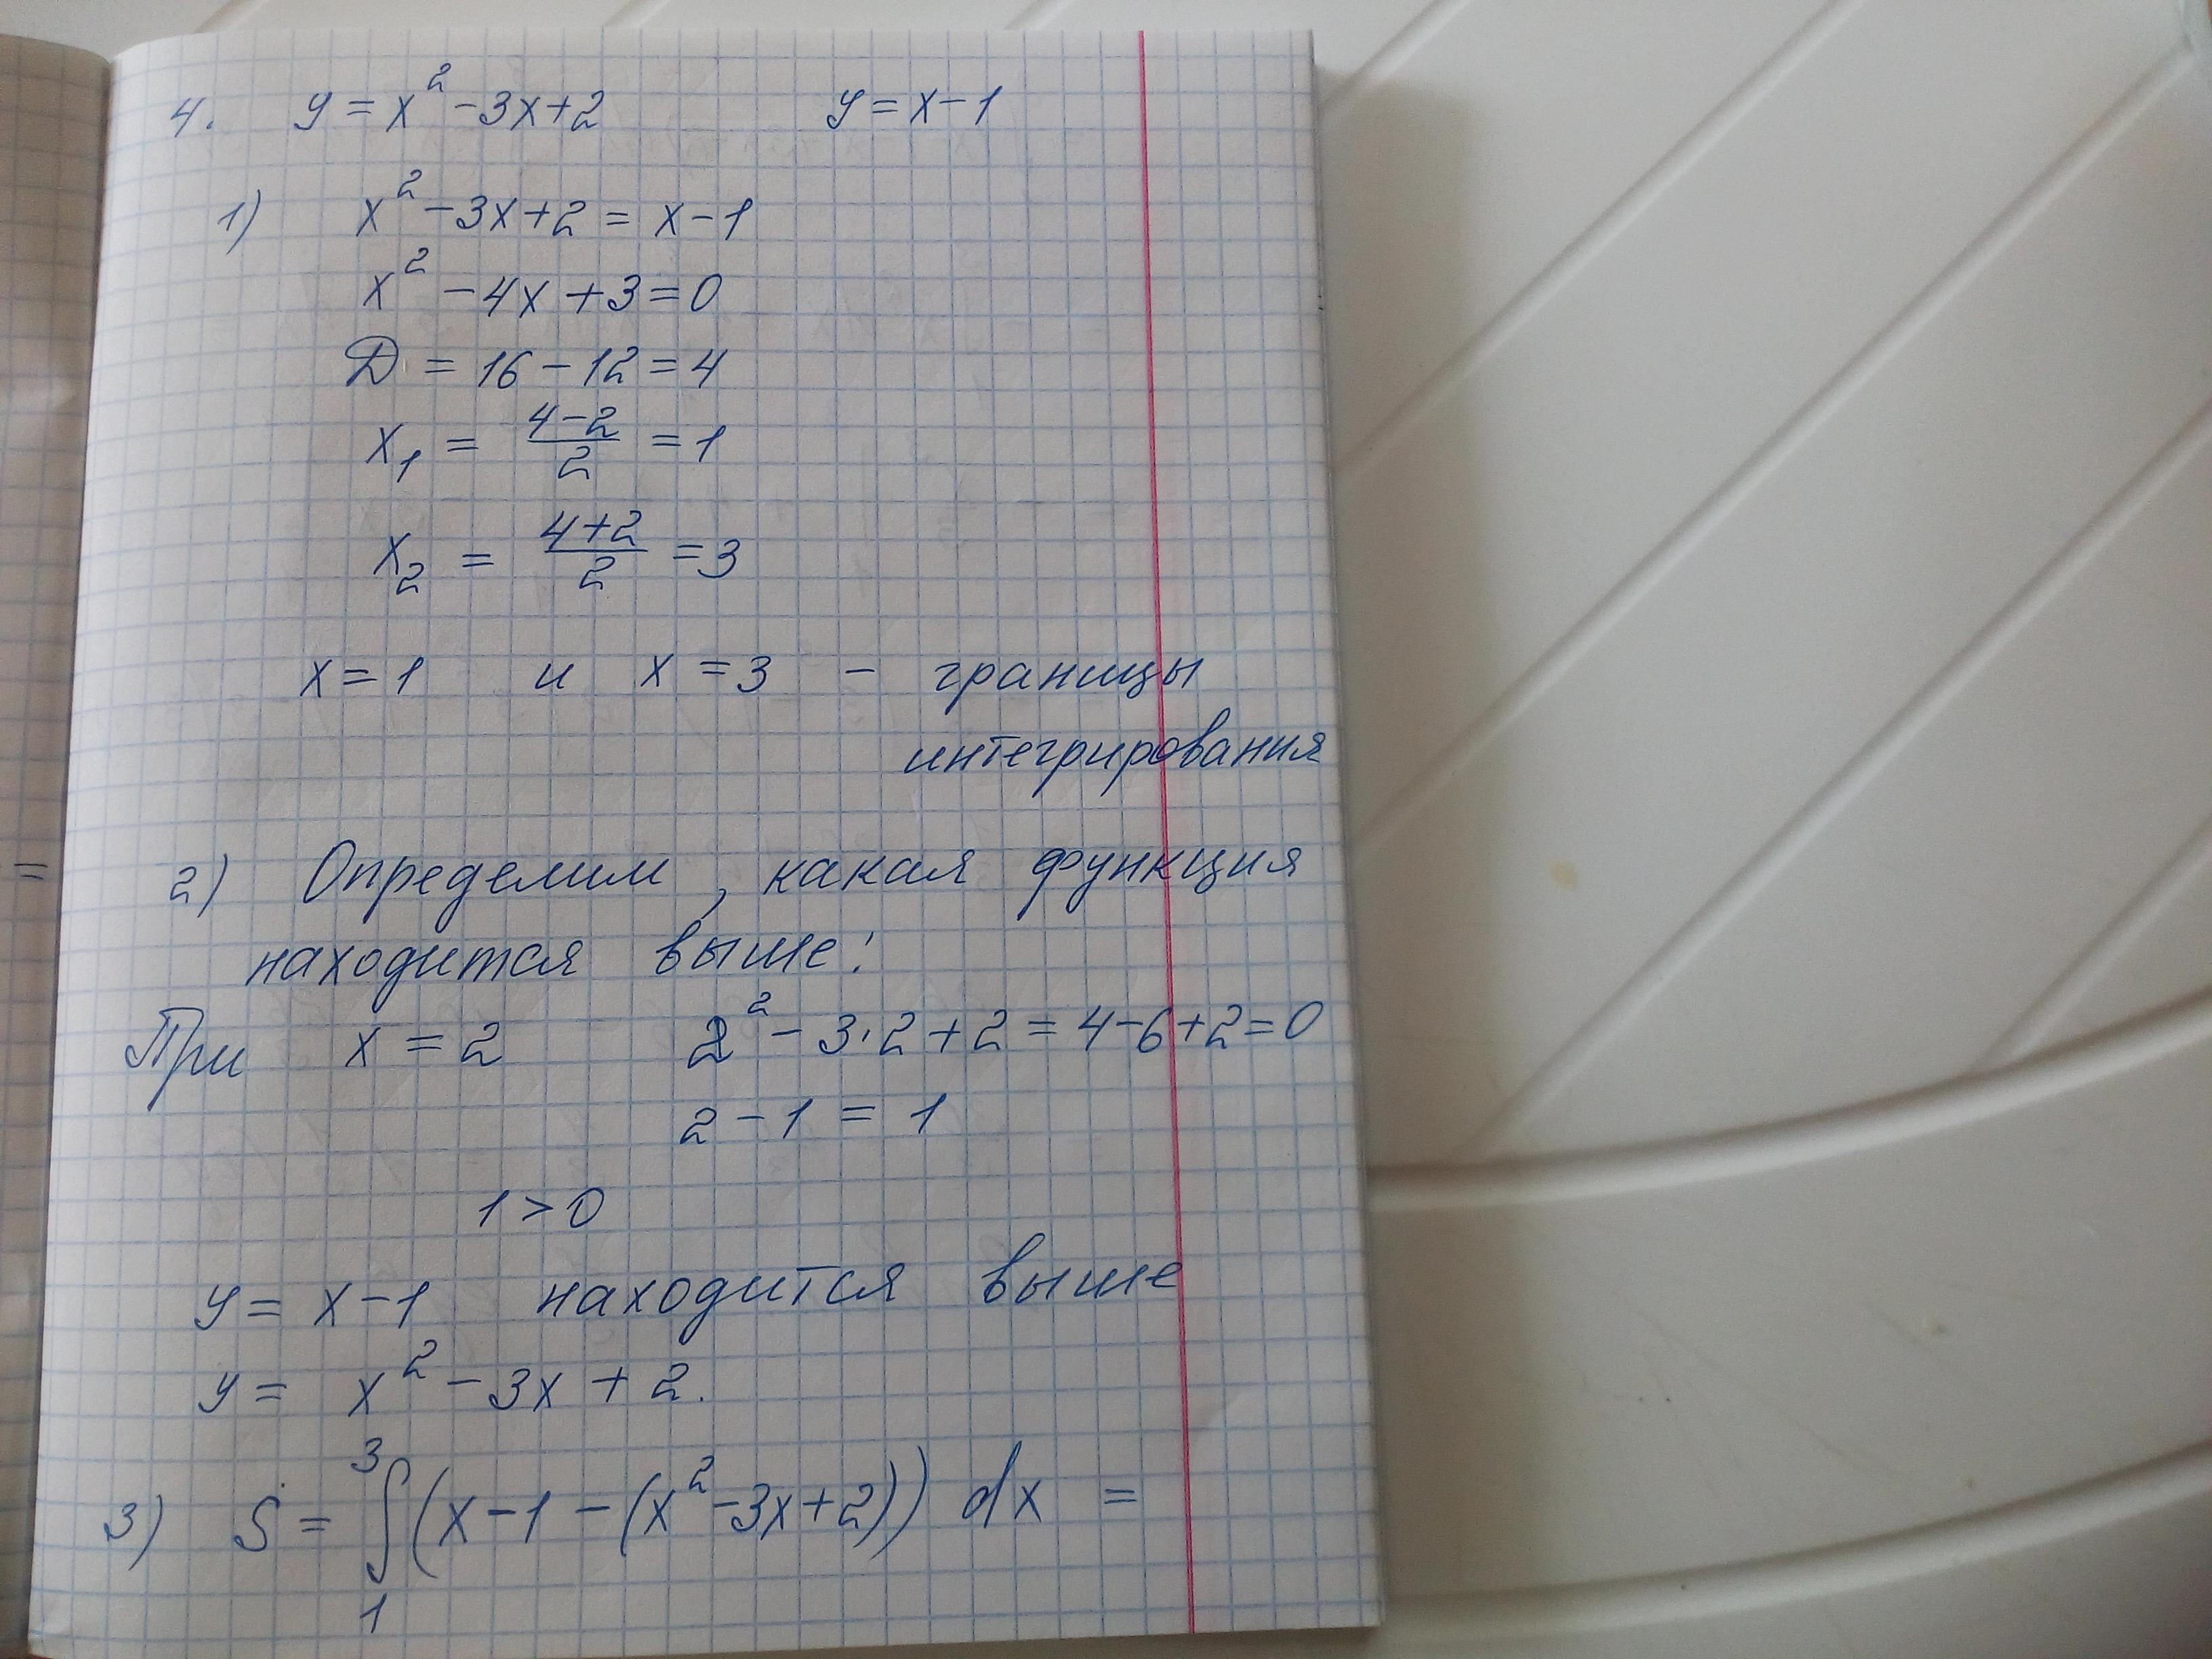 4. y = x² - 3x + 2 y = x - 1
1) x² - 3x + 2 = x - 1
x² - 4x + 3 = 0
Д = 16 - 12 = 4
x₁ = (4-2)/2 = 1
x₂ = (4+2)/2 = 3
x = 1 и x = 3 - границы
интегрирования
=
2) Определим, какая функция
находится выше:
При x = 2 2² - 3·2 + 2 = 4 - 6 + 2 = 0
2 - 1 = 1
1 > 0
y = x - 1 находится выше
y = x² - 3x + 2.
3) S = ∫₁³ (x - 1 - (x² - 3x + 2)) dx =